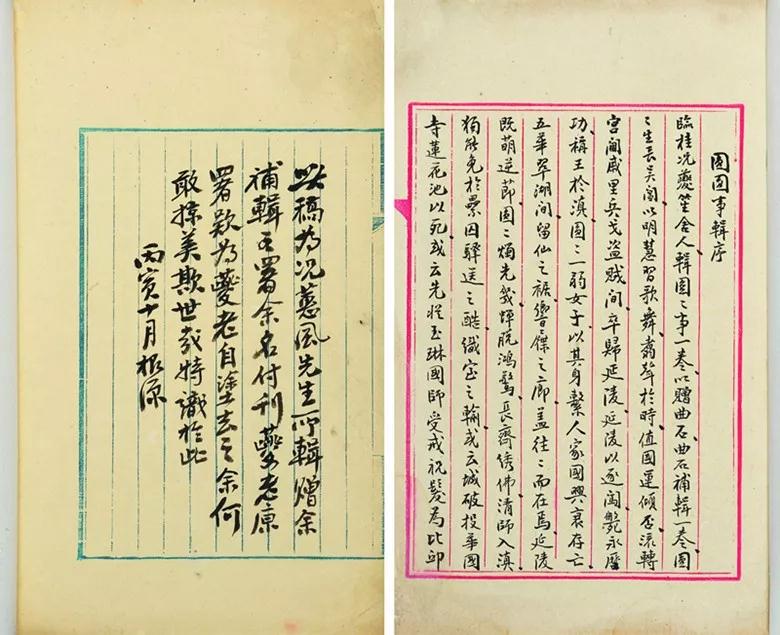 圓圓事輯序
臨桂况夔笙舍人輯圓〻事一卷以贈曲石曲石補輯一卷圓
〻生長吴閶以明慧習歌舞翥聲於時值國運傾否流轉
宫闈戚里兵戈盜賊間卒歸延陵延陵以逐闖斃永曆
功稱王於滇圓〻一弱女子以其身繫人家國興衰存亡
五華翠湖間留仙之裾響屧之廊蓋往〻而在焉延陵
既萌逆節圓〻燭先幾蟬脱鴻鶱長齋綉佛清師入滇
獨能免於纍囚驛送之酷織室之輸或云城破投華國
寺蓮花池以死或云先從玉琳國師受戒祝髮為比邱
此稿為况蕙風先生所輯贈余
補輯署余名付刊夔老原
署款為夔老自塗去之余何
敢掠美欺世哉特識於此
丙寅十月根源